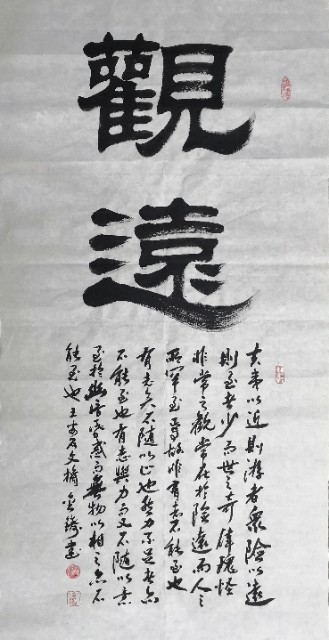 觀
遠
夫夷以近則游者衆險以遠
則至者少而世之奇偉瑰怪
非常之觀常在於險遠而人之
所罕至焉故非有志不能至也
有志矣不随以止也然力不足者亦
不能至也有志與力而又不随以怠
至於幽暗昏惑而無物以相之亦不
能至也 王安石文摘 書